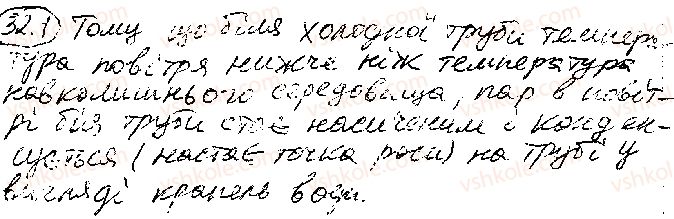 32.1 Тому що біля холодної труби темпера
тура повітря нижче ніж температура
навколишнього середовища, пар в повіт-
рі біля труби стає насиченим і конден-
сується (настає точка роси) на трубі у
вигляді крапель води.